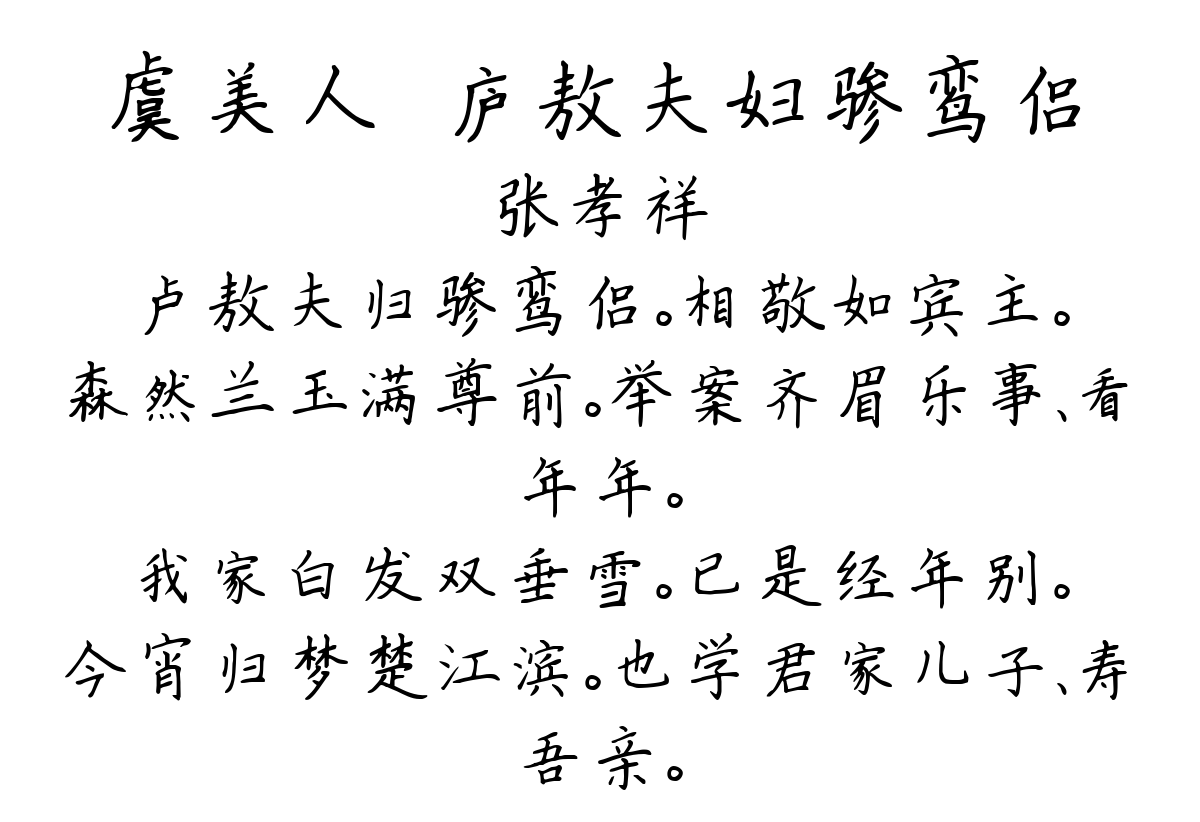 虞美人 庐敖夫妇骖鸾侣
张孝祥
卢敖夫归骖鸾侣。相敬如宾主。
森然兰玉满尊前。举案齐眉乐事、看
年年。
我家白发双垂雪。已是经年别。
今宵归梦楚江滨。也学君家儿子、寿
吾亲。